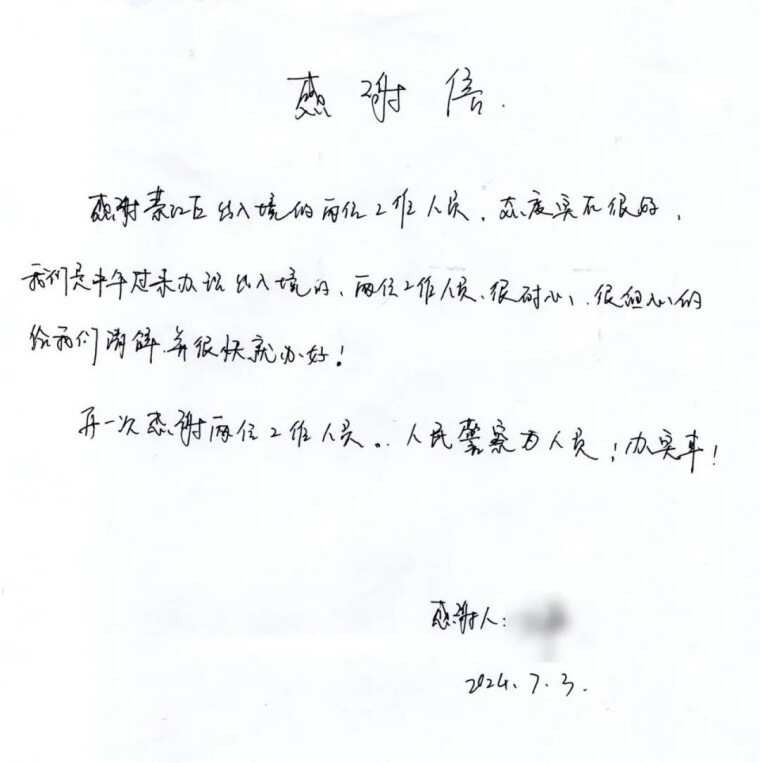 感谢信.
感谢綦江区出入境的两位工作人员，态度实在很好，
我们是中午过来办证出入境的，两位工作人员很耐心、很细心的
给我们讲解，并很快就办好！
再一次感谢两位工作人员。人民警察为人员！办实事！
感谢人：
2024.7.3.